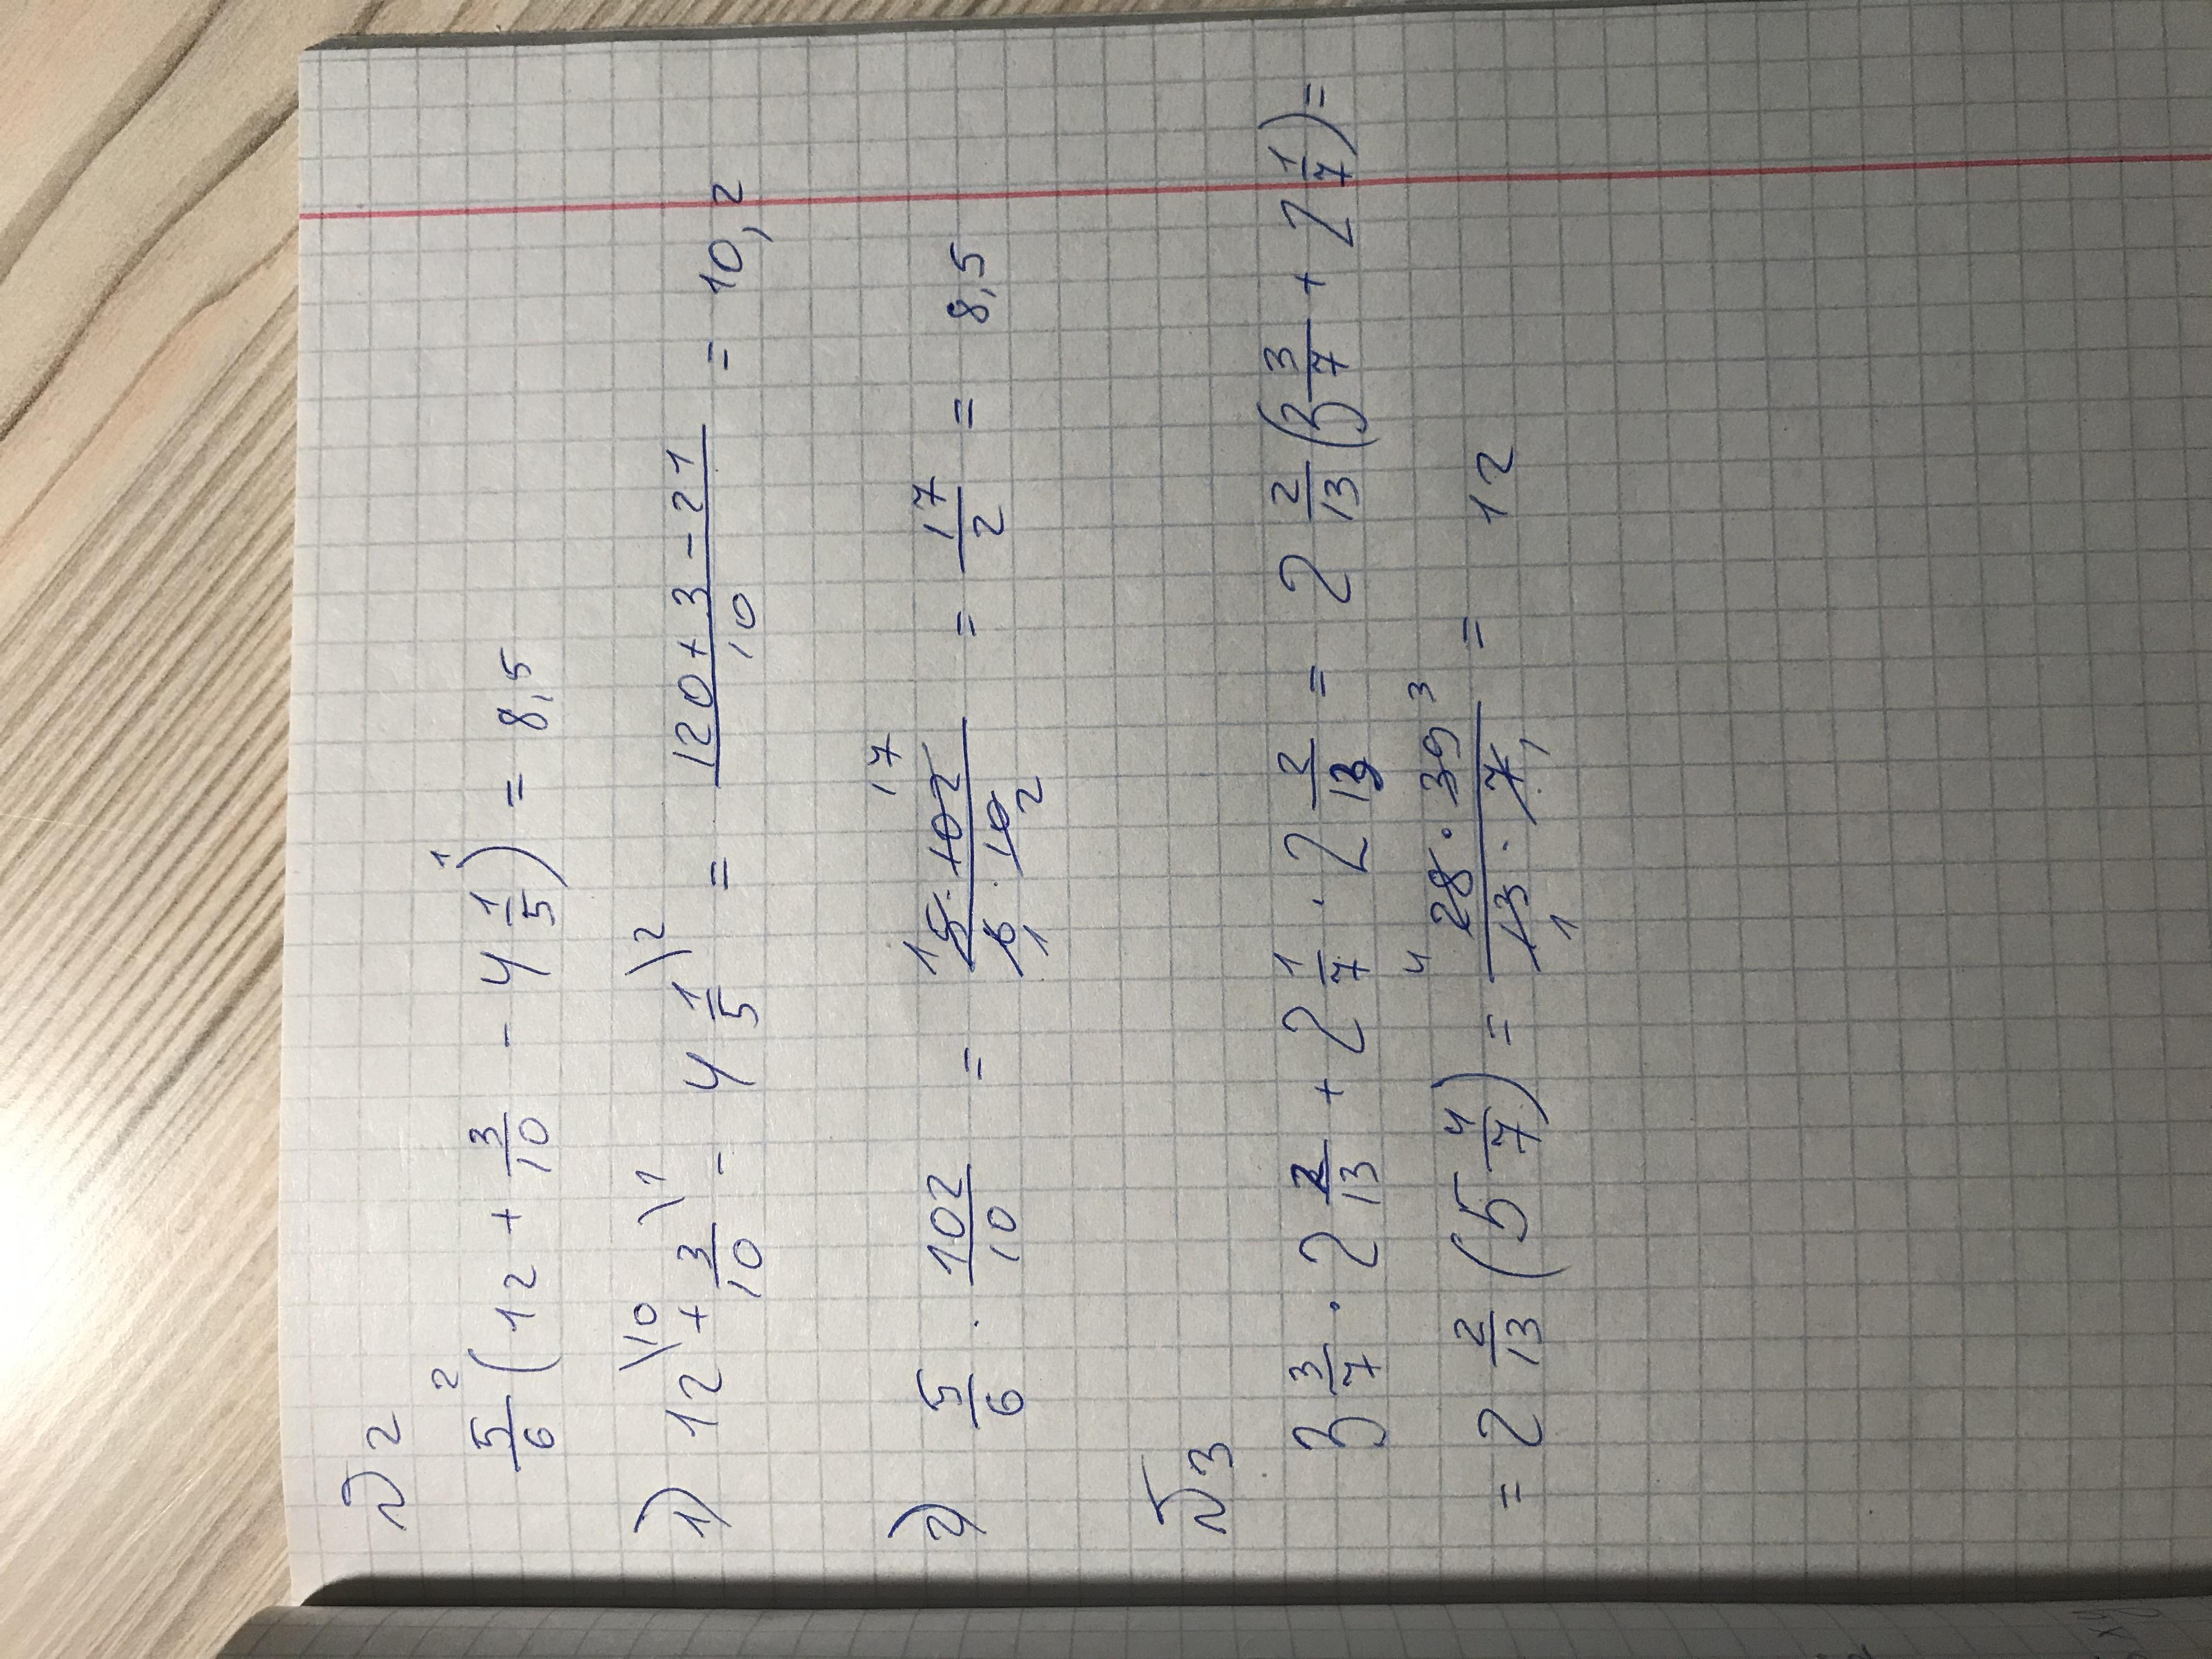 №2
5/6 ² (12 + 3/10 - 4 1/5) ¹ = 8,5
1) 12 \10 + 3/10 \1 - 4 1/5 \2 = (120 + 3 - 21)/10 = 10,2
2) 5/6 · 102/10 = (¹5 · 102 ¹⁷)/(6 ₁ · 10 ₂) = 17/2 = 8,5
№3
3 3/7 · 2 2/13 + 2 1/7 · 2 2/13 = 2 2/13 (3 3/7 + 2 1/7) =
= 2 2/13 (5 4/7) = (⁴ 28 · 39 ³)/(13 ₁ · 7 ₁) = 12